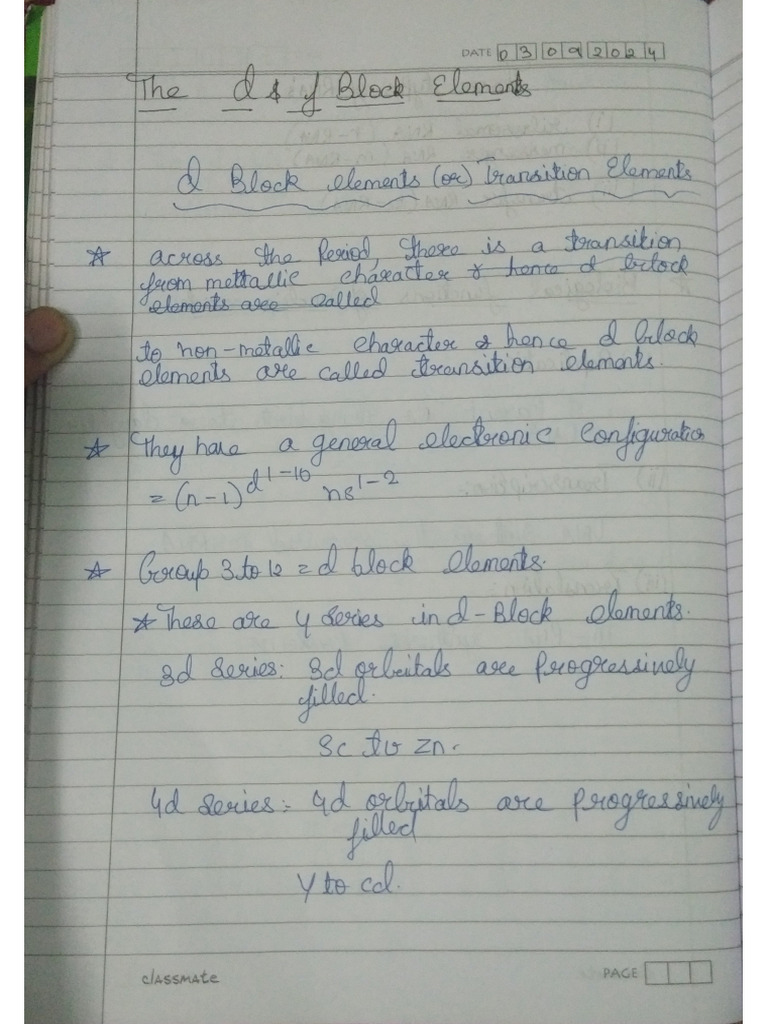 DATE 03092024
The d & f Block Elements
d Block elements (or) Transition Elements
☆ across the Period, there is a transition
from mettallic character & hence d block
elements are called
to non-metallic character & hence d block
elements are called transition elements.
☆ They have a general electronic configuration
= (n-1)d¹⁻¹⁰ ns¹⁻²
☆ Group 3 to 12 = d block elements.
☆ These are 4 series in d-Block elements.
3d series: 3d orbitals are Progressively
filled.
Sc to Zn.
4d series: 4d orbitals are progressively
filled
Y to Cd.
classmate PAGE